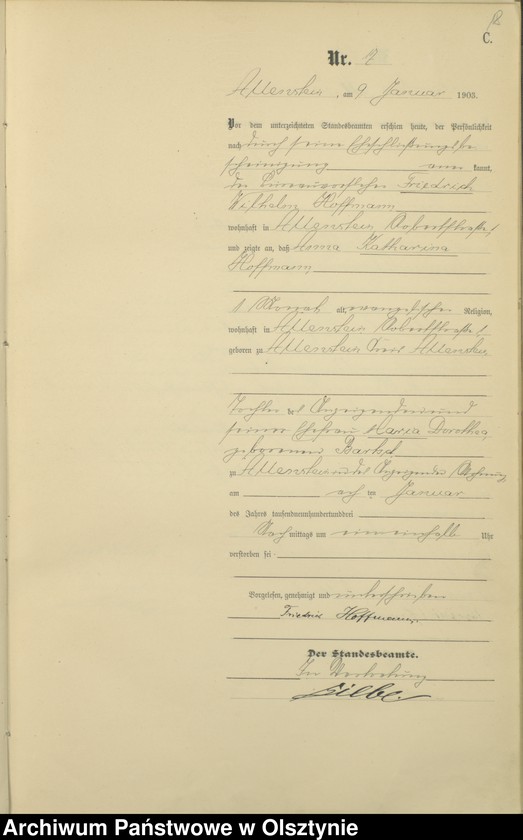 C.
Nr. 7
Allenstein, am 9 Januar 1903.
Vor dem unterzeichneten Standesbeamten erschien heute, der Persönlichkeit
nach durch seine Eheschließungsbe
scheinigung anerkannt,
der Bureauvorsteher Friedrich
Wilhelm Hoffmann
wohnhaft in Allenstein
und zeigte an, daß Anna Katharina
Hoffmann
1 Monat alt, evangelischer Religion,
wohnhaft in Allenstein
geboren zu Allenstein Kreis Allenstein
Tochter des Anzeigenden und
seiner Ehefrau Maria Dorothea
geborenen
zu Allenstein in des Anzeigenden Wohnung
am acht ten Januar
des Jahres tausendneunhundertunddrei
Nachmittags um ein einhalb Uhr
verstorben sei
Vorgelesen, genehmigt und unterschrieben
Friedrich Hoffmann.
Der Standesbeamte.
In Vertretung
Archiwum Państwowe w Olsztynie